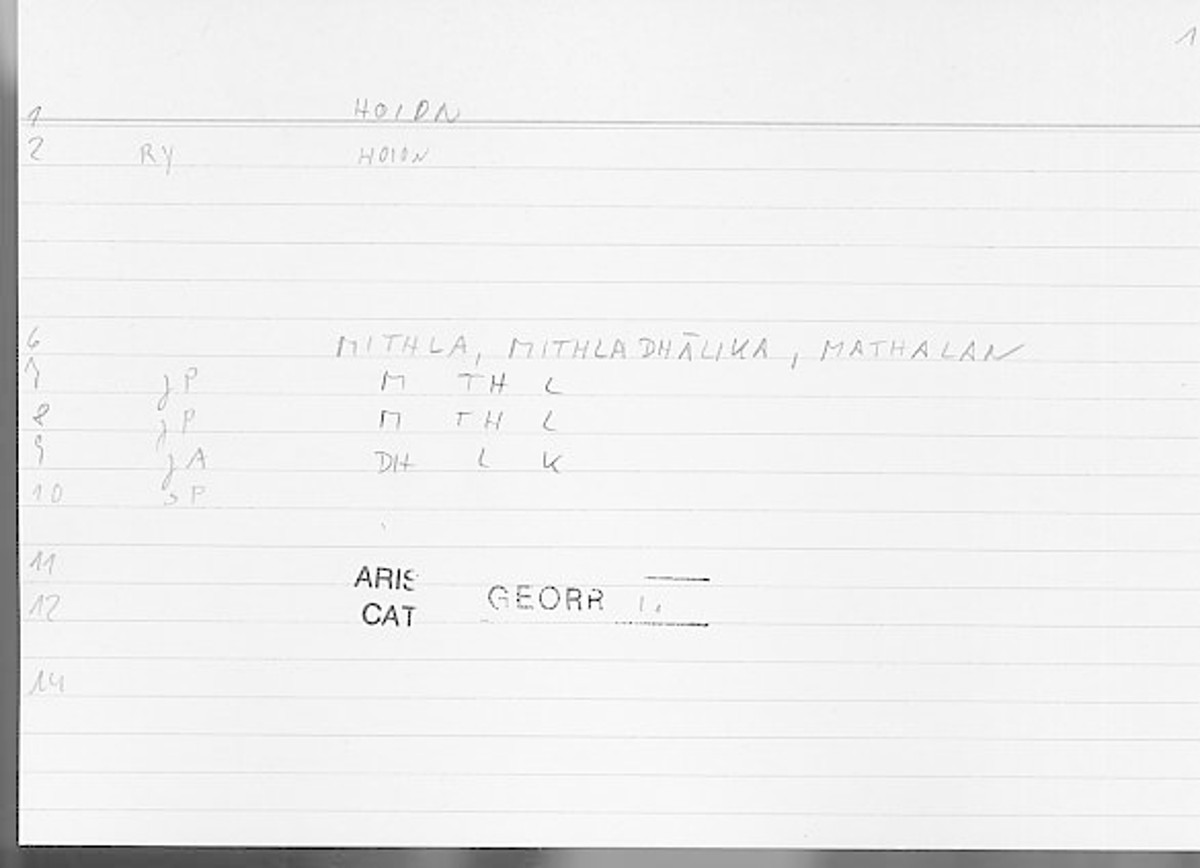 1
1 HOION
2 RY HOION
6 MITHLA, MITHLADHĀLIKA, MATHALAN
7 jP M TH L
8 jP M TH L
9 jA DH L K
10 P
11 ARIS
12 CAT GEORR
14